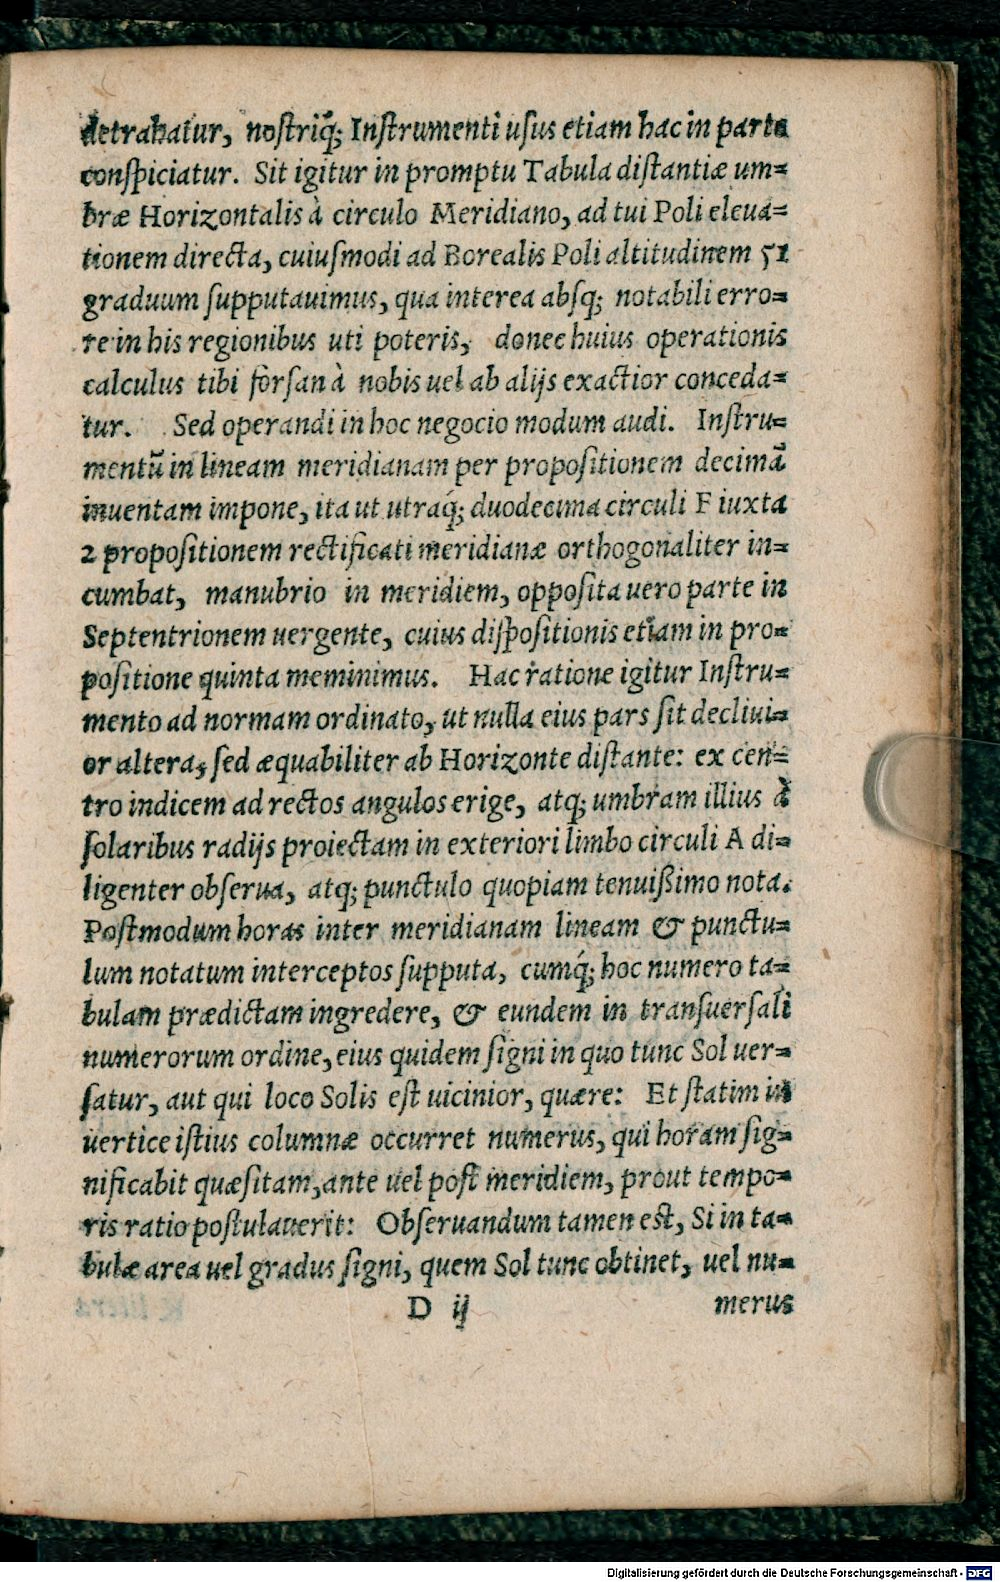 detrahatur, nostriq́; Instrumenti usus etiam hac in parte
conspiciatur. Sit igitur in promptu Tabula distantiæ um-
bræ Horizontalis à circulo Meridiano, ad tui Poli eleua-
tionem directa, cuiusmodi ad Borealis Poli altitudinem 51
graduum supputauimus, qua interea absq; notabili erro-
re in his regionibus uti poteris, donec huius operationis
calculus tibi forsan à nobis uel ab alijs exactior conceda-
tur. Sed operandi in hoc negocio modum audi. Instru-
mentũ in lineam meridianam per propositionem decimã
inuentam impone, ita ut utraq́; duodecima circuli F iuxta
2 propositionem rectificati meridianæ orthogonaliter in-
cumbat, manubrio in meridiem, opposita uero parte in
Septentrionem uergente, cuius dispositionis etiam in pro-
positione quinta meminimus. Hac ratione igitur Instru-
mento ad normam ordinato, ut nulla eius pars sit decliui-
or altera, sed æquabiliter ab Horizonte distante: ex cen-
tro indicem ad rectos angulos erige, atq; umbram illius à
solaribus radijs proiectam in exteriori limbo circuli A di-
ligenter obserua, atq; punctulo quopiam tenuißimo nota.
Postmodum horas inter meridianam lineam & punctu-
lum notatum interceptos supputa, cumq́; hoc numero ta-
bulam prædictam ingredere, & eundem in transuersali
numerorum ordine, eius quidem signi in quo tunc Sol uer-
satur, aut qui loco Solis est uicinior, quære: Et statim in
uertice istius columnæ occurret numerus, qui horam sig-
nificabit quæsitam, ante uel post meridiem, prout tempo-
ris ratio postulauerit: Obseruandum tamen est, Si in ta-
bulæ area uel gradus signi, quem Sol tunc obtinet, uel nu-
D ij merus
Digitalisierung gefördert durch die Deutsche Forschungsgemeinschaft - DFG